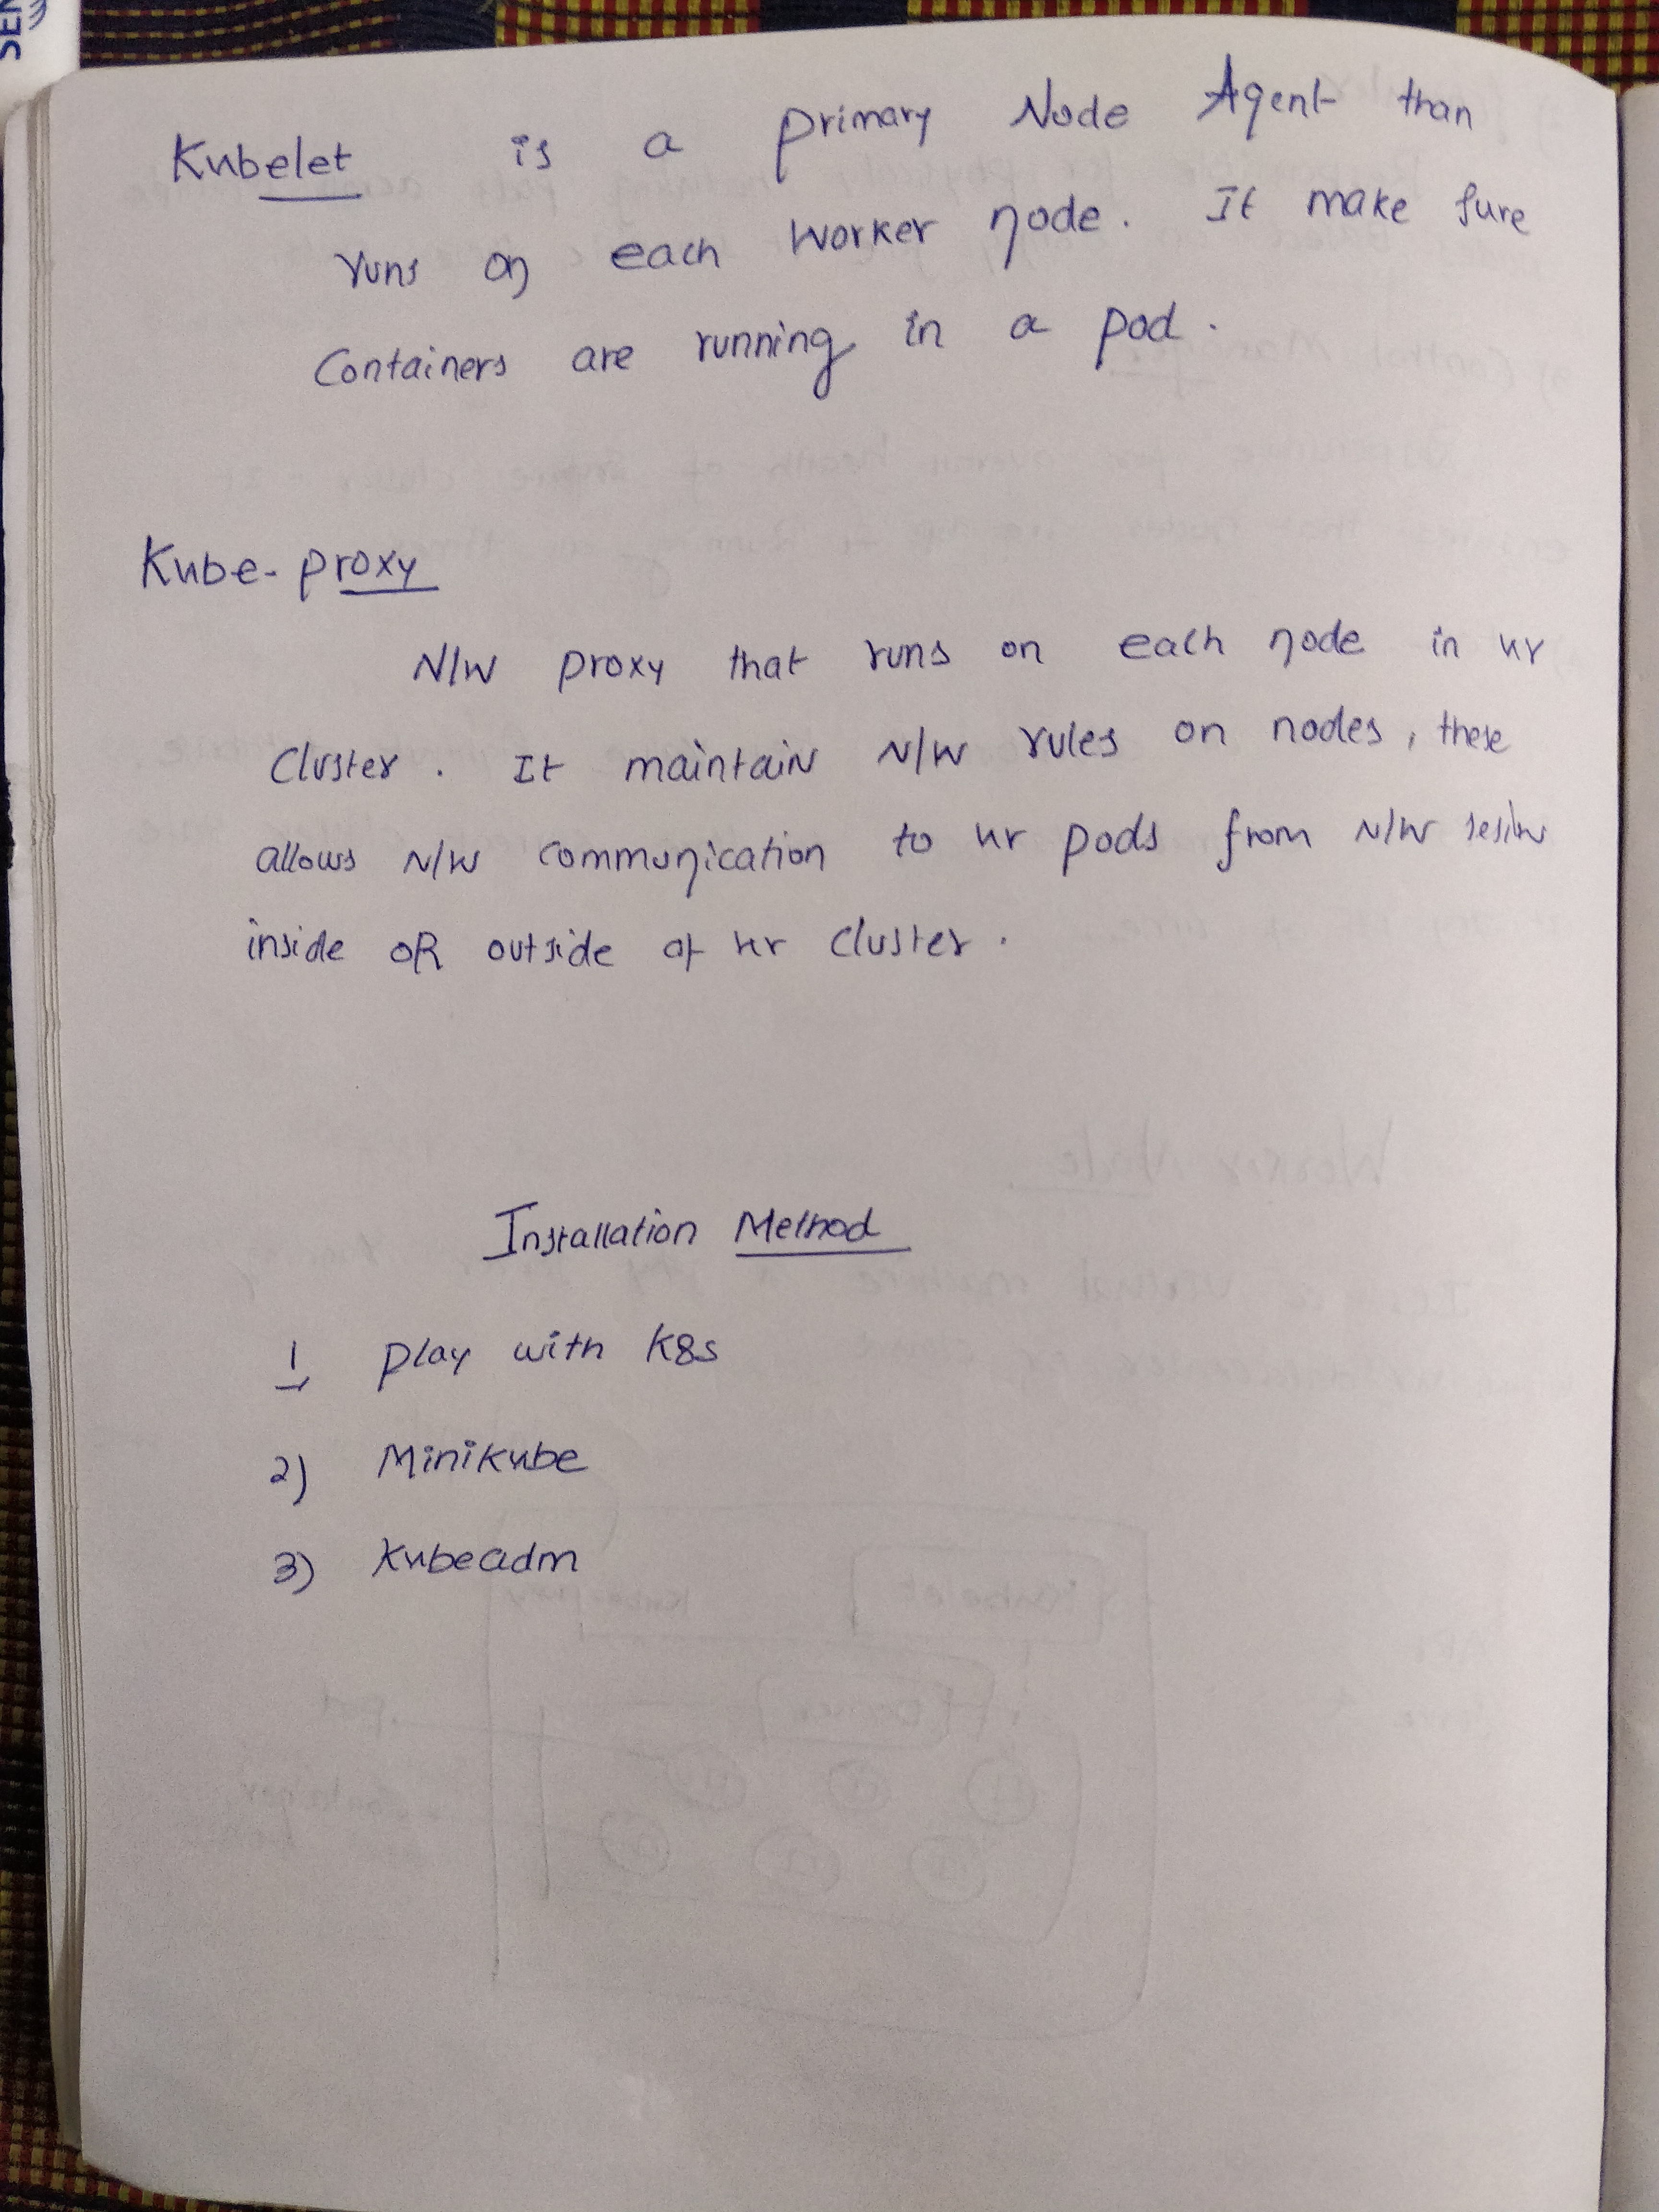 SEN
Kubelet is a primary Node Agent than
runs on each worker node. It make sure
Containers are running in a pod.
Kube-proxy
N/W proxy that runs on each node in ur
Cluster. It maintain N/W rules on nodes, these
allows N/W communication to ur pods from N/W
inside OR outside of ur cluster.
Installation Method
1 play with K8s
2) Minikube
3) Kubeadm